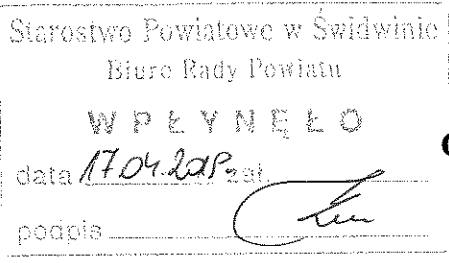 Starostwo Powiatowe w Świdwinie
Biuro Rady Powiatu
WPŁYNĘŁO
data 17.04. zał.
podpis